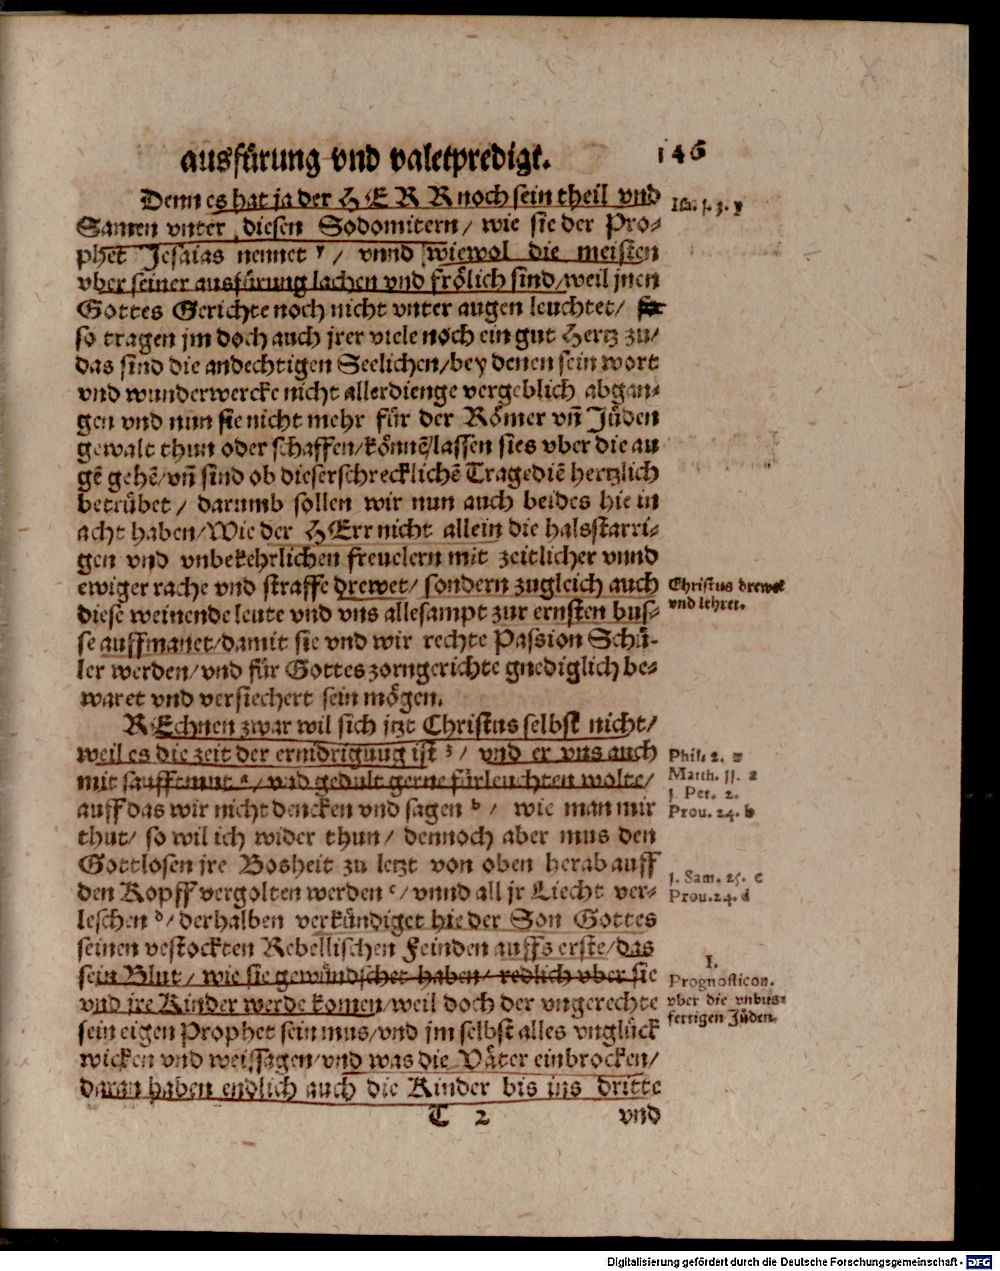 ausfürung vnd valetpredigt. 146
Denn es hat ja der HERR noch sein theil vnd
Samen vnter diesen Sodomitern / wie sie der Pro-
phet Jesaias nennet y / vnnd wiewol die meisten
vber seiner ausfürung lachen vnd frölich sind / weil jnen
Gottes Gerichte noch nicht vnter augen leuchtet /
so tragen jm doch auch jrer viele noch ein gut Hertz zu /
das sind die andechtigen Seelichen / bey denen sein wort
vnd wunderwercke nicht allerdienge vergeblich abgan-
gen vnd nun sie nicht mehr für der Römer vñ Jüden
gewalt thun oder schaffen / könnē / lassen sies vber die au
gē gehē / vñ sind ob dieser schrecklichē Tragediē hertzlich
betrübet / darumb sollen wir nun auch beides hie in
acht haben / Wie der HErr nicht allein die halsstarri-
gen vnd vnbekehrlichen freuelern mit zeitlicher vnnd
ewiger rache vnd straffe drewet / sondern zugleich auch
diese weinende leute vnd vns allesampt zur ernsten bus-
se auffmanet / damit sie vnd wir rechte Passion Schü-
ler werden / vnd für Gottes zorngerichte gnediglich be-
waret vnd versiechert sein mögen.
REchnen zwar wil sich jtzt Christus selbst nicht /
weil es die zeit der ernidrigung ist z / vnd er vns auch
mit sanfftmut a / vnd gedult gerne fürleuchten wolte /
auff das wir nicht dencken vnd sagen b / wie man mir
thut / so wil ich wider thun / dennoch aber mus den
Gottlosen jre Bosheit zu letzt von oben herab auff
den Kopff vergolten werden c / vnnd all jr Liecht ver-
leschen d / derhalben verkündiget hie der Son Gottes
seinen vestockten Rebellischen Feinden auffs erste / das
sein Blut / wie sie gewündschet haben / redlich vber sie
vnd jre Kinder werde komen / weil doch der vngerechte
sein eigen Prophet sein mus / vnd jm selbst alles vnglück
wicken vnd weissagen / vnd was die Väter einbrocken /
daran haben endlich auch die Kinder bis ins dritte
T 2 vnd
Isa. j. 3. y
Christus drewet
vnd lehret.
Phil. 2. z
Matth. jj. a
j Pet. 2.
Prou. 24. b
j. Sam. 25. c
Prou. 24. d
I.
Prognosticon.
vber die vnbus-
fertigen Jüden.
Digitalisierung gefördert durch die Deutsche Forschungsgemeinschaft - DFG